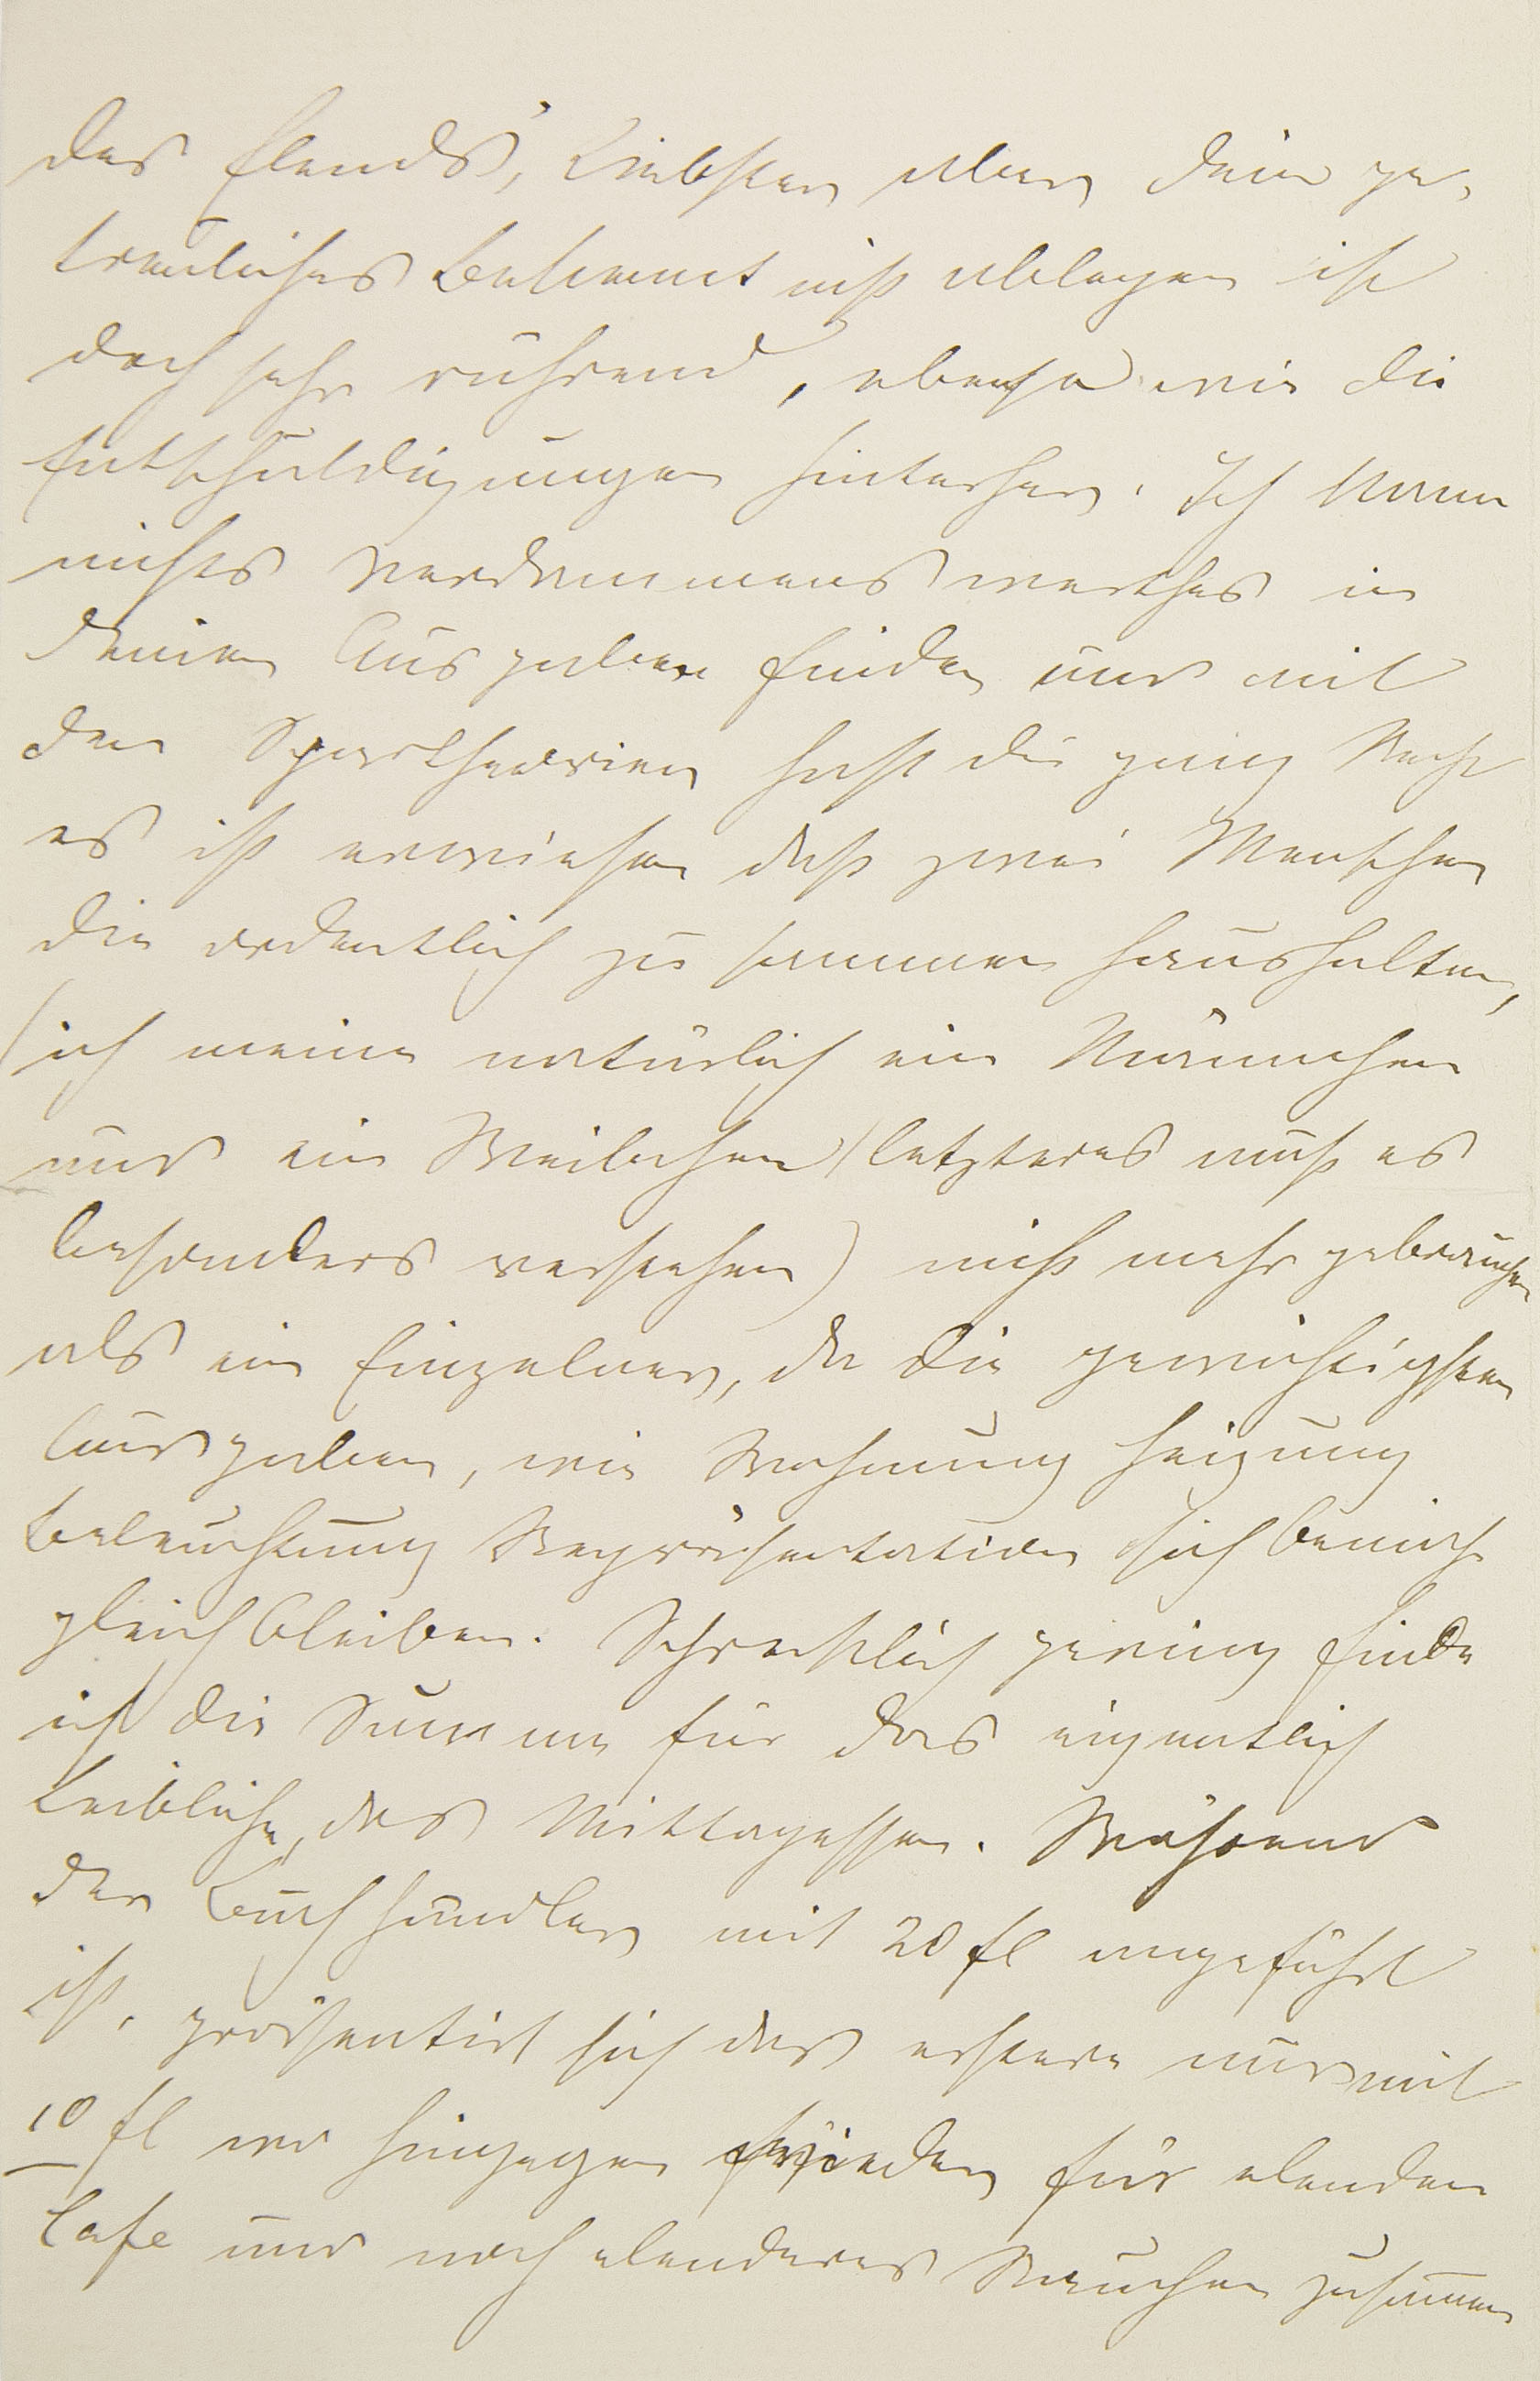 des Elends", Liebster aber Dein ge-
treuliches Bekenntniß ablegen ist
doch sehr rührend, ebenso wie die
Entschuldigungen hinterher. Ich kann
nichts verdammenswerthes in
Deinen Ausgaben finden und mit
den Spartheorien hast du ganz Recht
es ist erwiesen daß zwei Menschen
die ordentlich zusammen haushalten,
(ich meine natürlich ein Männchen
und ein Weibchen /letzteres muß es
besonders verstehen) nicht mehr gebrauchen
als ein Einzelner, da die gewichtigsten
Ausgaben, wie Wohnung Heizung
Beleuchtung Repräsentation sich beinah
gleich bleiben. Schrecklich gering finde
ich die Summe für das eigentlich
Leibliche, das Mittagessen. Während
der Buchhändler mit 20 fl angeführt
ist, präsentirt sich das erstere nur mit
10 fl wo hingegen für elenden
Cafe und noch elenderes Rauchen zusammen